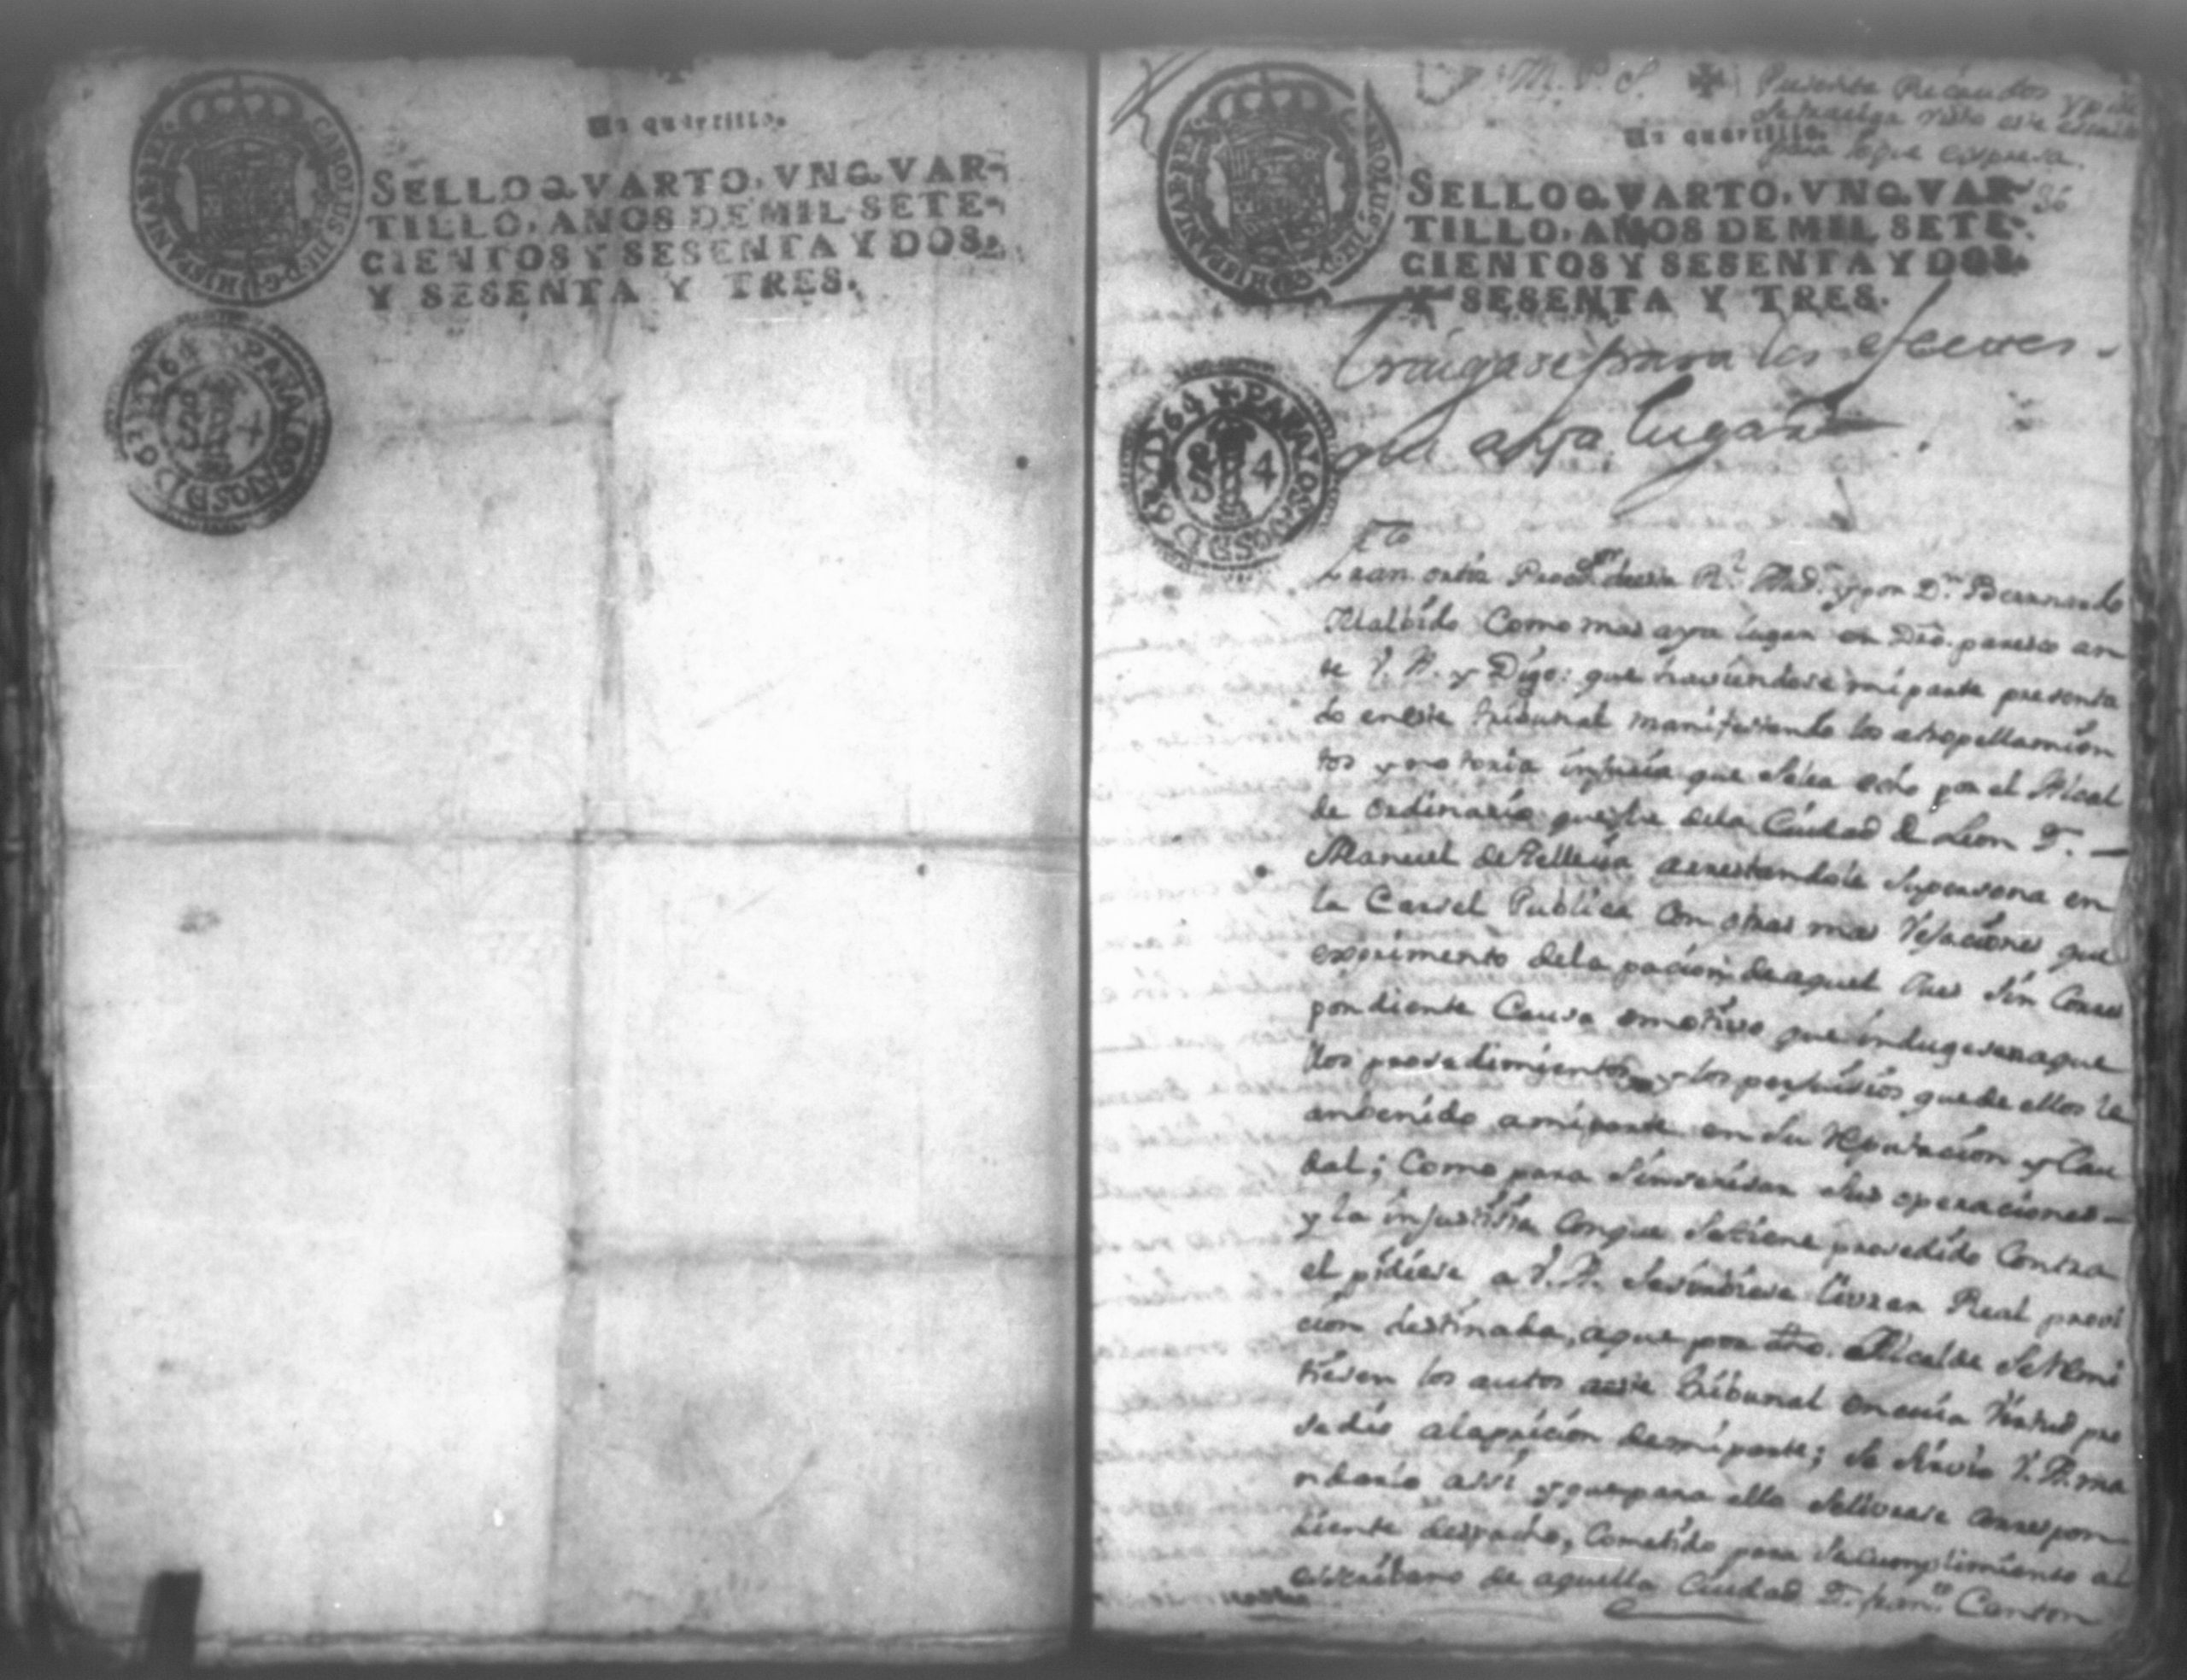 Un quartillo.
SELLO QVARTO, VN QVAR-
TILLO, AÑOS DE MIL SETE-
CIENTOS Y SESENTA Y DOS,
Y SESENTA Y TRES.
CAROLUS III D G HISPANIAR REX
PARA LOS AÑOS D 1764 Y 65
S 4
M. P. S.
Presenta Recaudos y pide
se traiga visto este escrito
para lo que expresa.
Un quartillo.
36
SELLO QVARTO, VN QVAR-
TILLO, AÑOS DE MIL SETE-
CIENTOS Y SESENTA Y DOS,
Y SESENTA Y TRES.
CAROLUS III D G HISPANIAR REX
Traigase para los efectos
que aya lugar
PARA LOS AÑOS D 1764 Y 65
S 4
Fran.co ortiz Proc.or de esta R.l Aud.a y por D.n Bernardo
Malbido Como mas aya lugar en Dro. paresco an
te V. A. y Digo: que haviendose mi parte presenta
do en este tribunal manifestando los atropellamien
tos y notoria injuria que sele a echo por el Alcal
de ordinario que fue dela Ciudad de Leon D.
Manuel de Telleria arrestandole su persona en
la Carsel Publica Con otras mas Vejaciones que
expirimento dela pacion de aquel Jues sin Corres
pondiente Causa o motivo que indugesen aque
llos prosedimientos y los perjuisios que de ellos le
an benido a mi parte en su Reputacion y Cau
dal; Como para sinserisar sus operaciones
y la injustisia Conque se tiene prosedido Contra
el pidiese a V. A. se sirviese librar Real provi
cion destinada, a que por dho. Alcalde se Remi
tiesen los autos a este tribunal en cuia Virtud pre
sedio ala pricion de mi parte; se sirvio V. A. ma
ndarlo assi y que para ello se librase Correspon
diente despacho, Cometido para su Cumplimiento al
escribano de aquella Ciudad D. Fran.co Canton